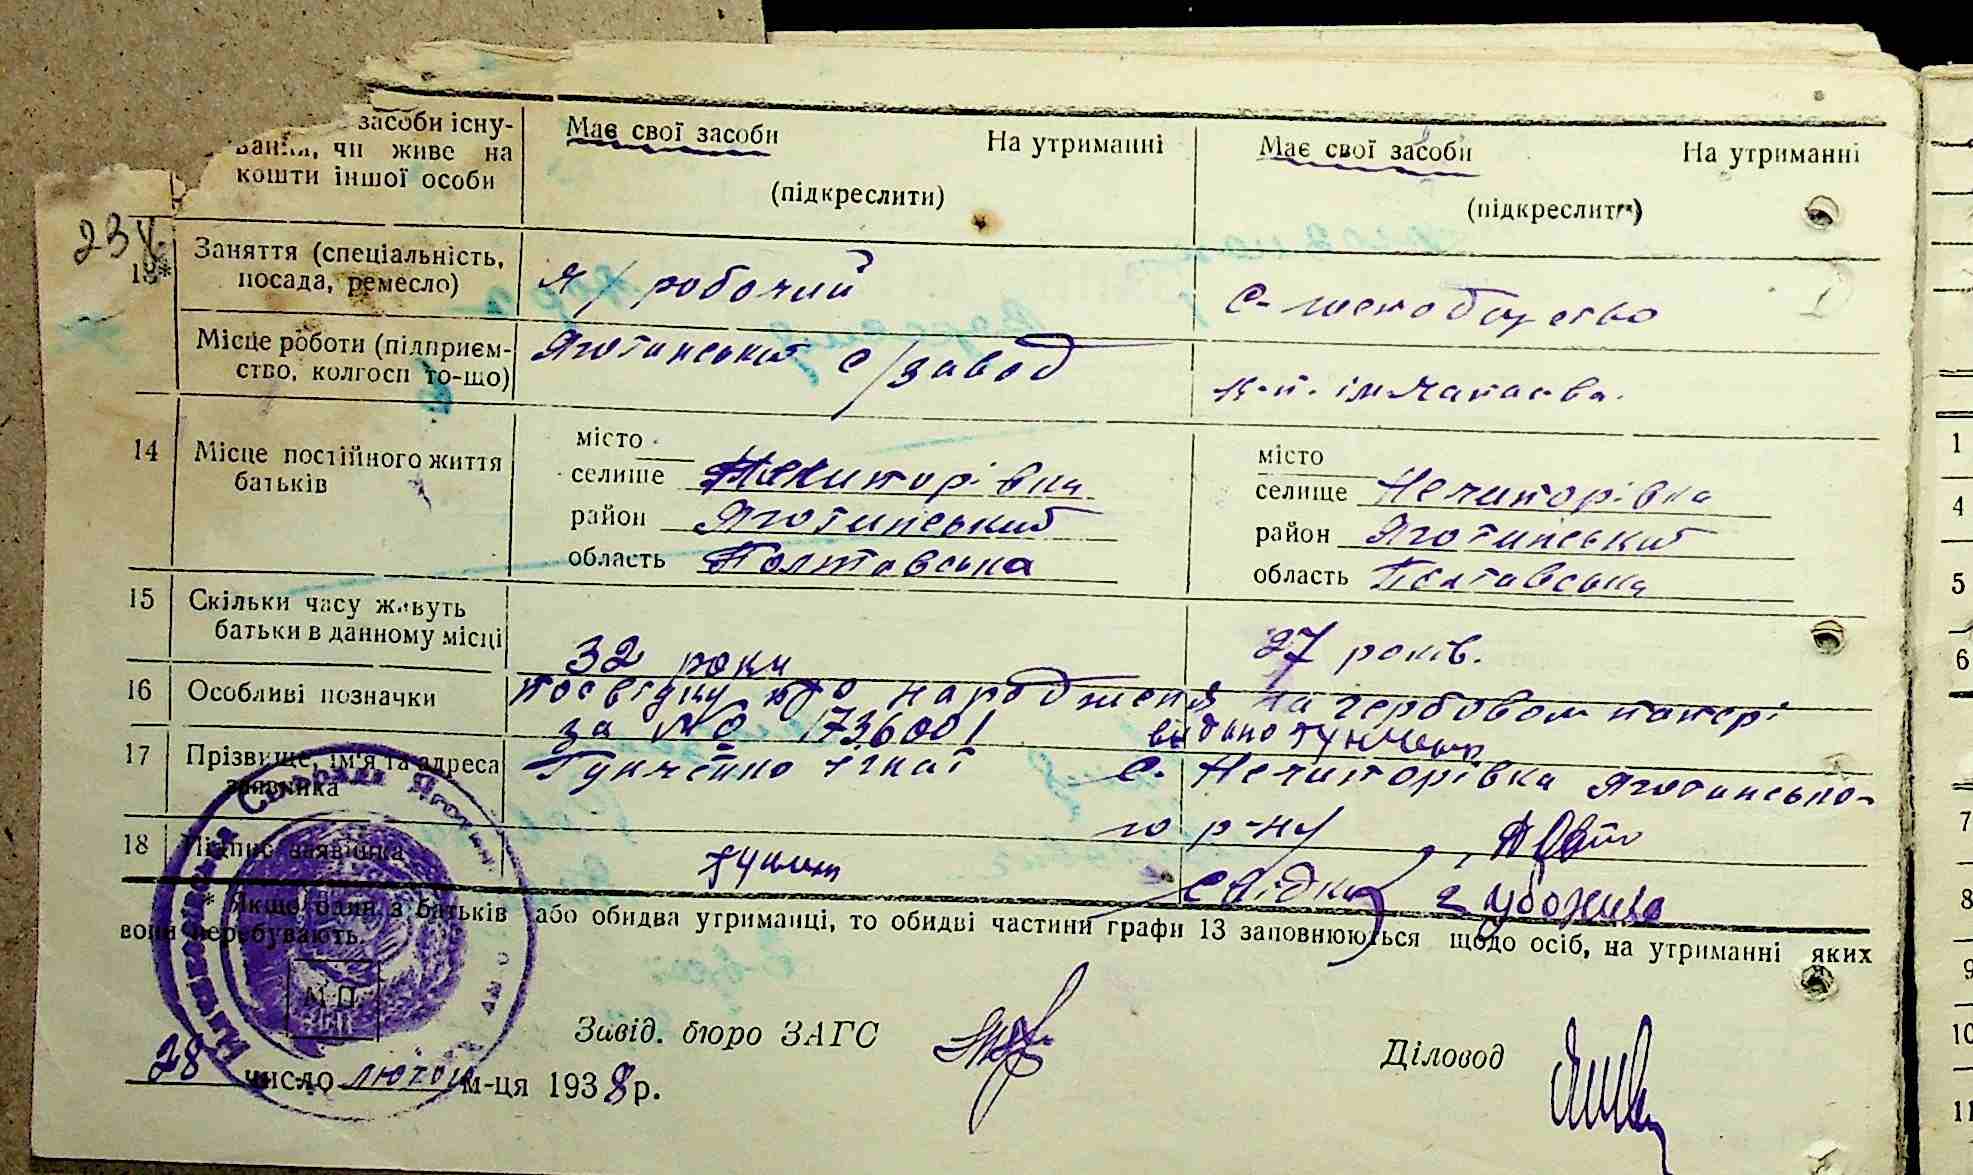 засоби існу-
вання, чи живе на
кошти іншої особи
Має свої засоби На утриманні
(підкреслити)
Має свої засоби На утриманні
(підкреслити)
238.
13*
Заняття (спеціальність,
посада, ремесло)
робочий
Місце роботи (підприєм-
ство, колгосп то-що)
Яготинський с/завод
к-п. ім Чапаєва.
14
Місце постійного життя
батьків
місто
селище Нечипорівка
район Яготинський
область Полтавська
місто
селище Нечипорівка
район Яготинський
область Полтавська
15
Скільки часу живуть
батьки в данному місці
32 роки
27 років.
16
Особливі позначки
посвідку про народження на гербовом папері
за № 1736001 видано
17
Прізвище, ім'я та адреса
заявника
с. Нечипорівка Яготинсько-
го р-ну
18
Підпис заявника
Свідки
* Якщо один з батьків або обидва утриманці, то обидві частини графи 13 заповнюються щодо осіб, на утриманні яких
вони перебувають.
М.П.
Завід. бюро ЗАГС
Діловод
28 число лютого м-ця 1938 р.
1
4
5
6
7
8
9
10
11